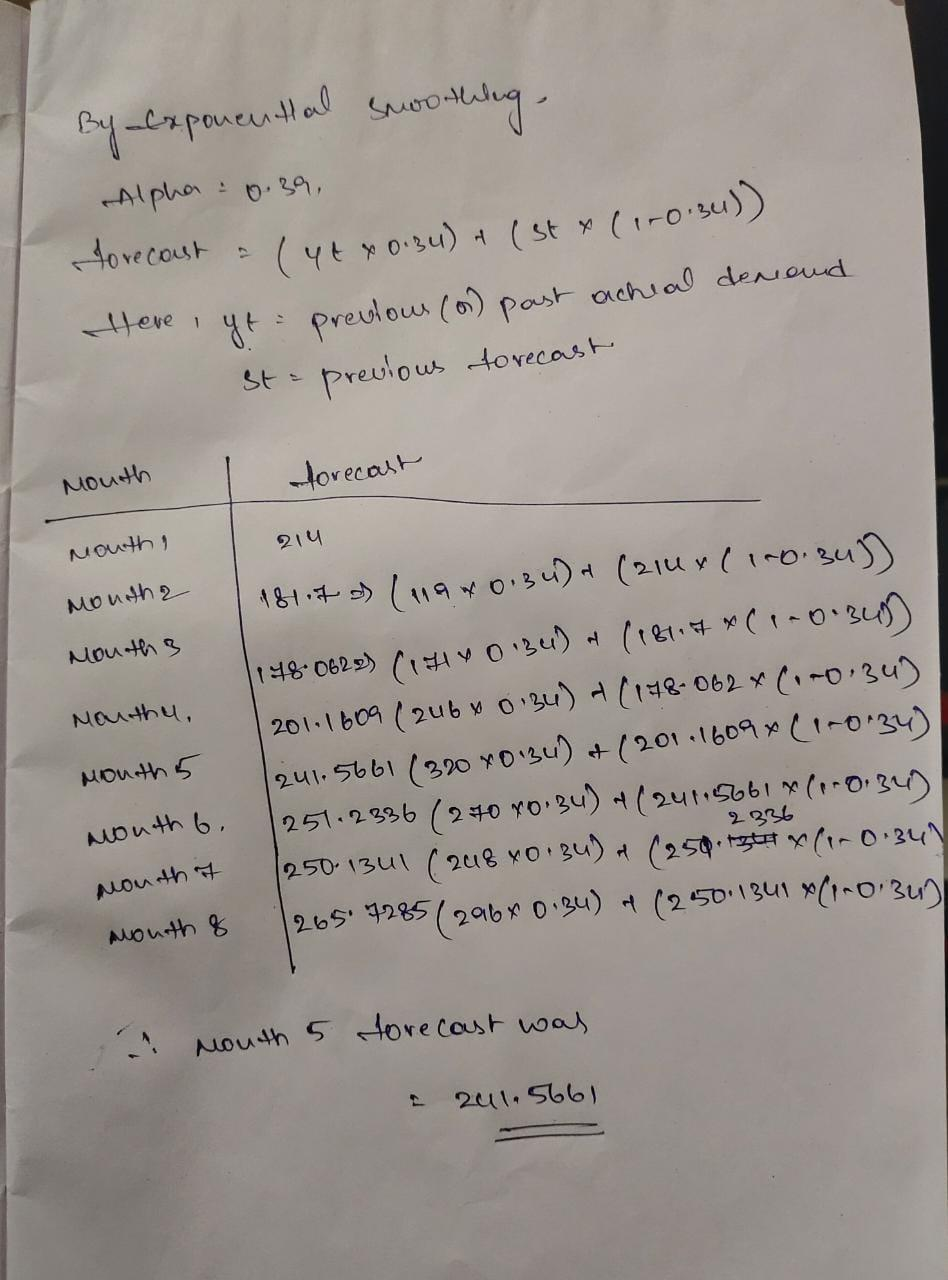 By Exponential smoothing.
Alpha = 0.39,
forecast = (yt × 0.34) + (st × (1-0.34))
Here, yt = previous (or) past actual demand
st = previous forecast
Month forecast
Month 1 214
Month 2 181.7 => (119 × 0.34) + (214 × (1-0.34))
Month 3 178.062 => (171 × 0.34) + (181.7 × (1-0.34))
Month 4. 201.1609 (246 × 0.34) + (178.062 × (1-0.34)
Month 5 241.5661 (320 × 0.34) + (201.1609 × (1-0.34)
Month 6. 251.2336 (270 × 0.34) + (241.5661 × (1-0.34)
2336
Month 7 250.1341 (248 × 0.34) + (251. × (1-0.34)
Month 8 265.7285 (296 × 0.34) + (250.1341 × (1-0.34)
∴ Month 5 forecast was
= 241.5661